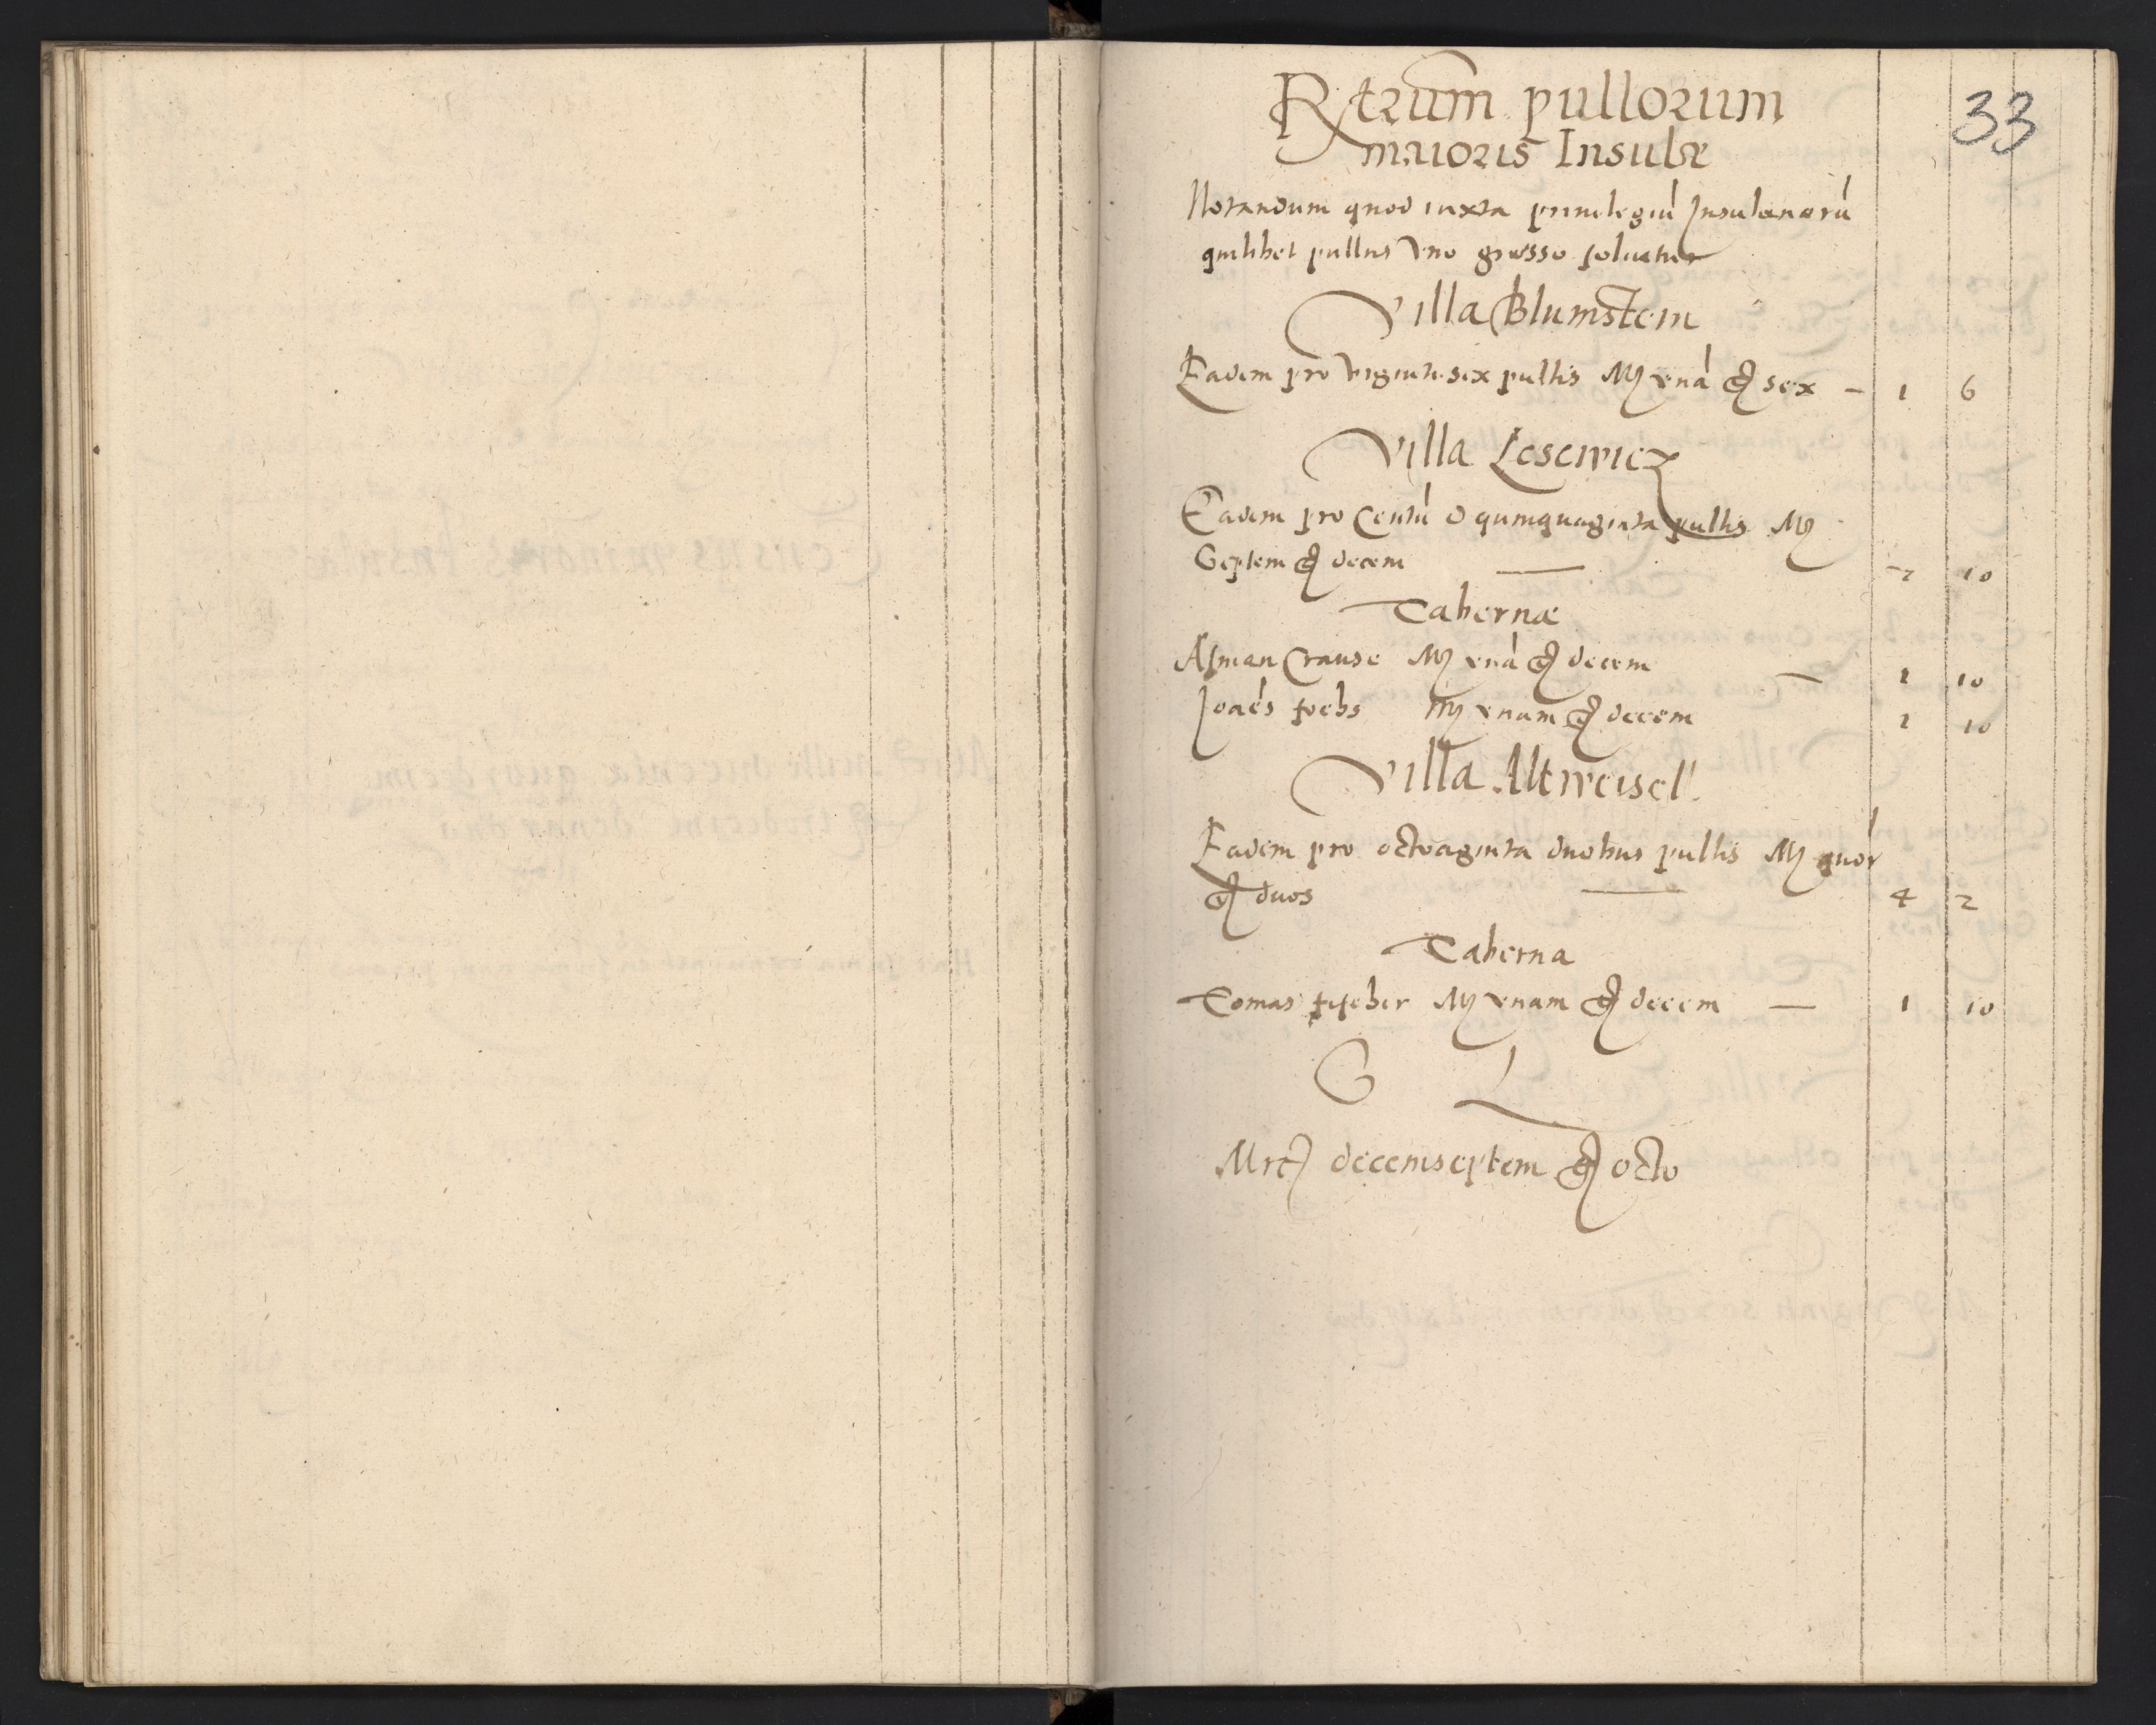 33
Rtrum pullorum
maioris Insulæ
Notandum quod iuxta priuilegiú Insulanorú
quilibet pullus vno grosso soluatur
Villa Blumstein
Eadem pro vigintisex pullis Mr vná gr sex — 1 6
Villa Lesewicz
Eadem pro Centú & quinquaginta pullis Mr
Septem gr decem — 7 10
Tabernæ
Asman Crause Mr vná gr decem — 1 10
Joaés Mr vnam gr decem 1 10
Villa Altweisel
Eadem pro octoaginta duobus pullis Mr quor
gr duos — 4 2
Taberna
Tomas Mr vnam gr decem — 1 10
S L
Mrc decemseptem gr octo